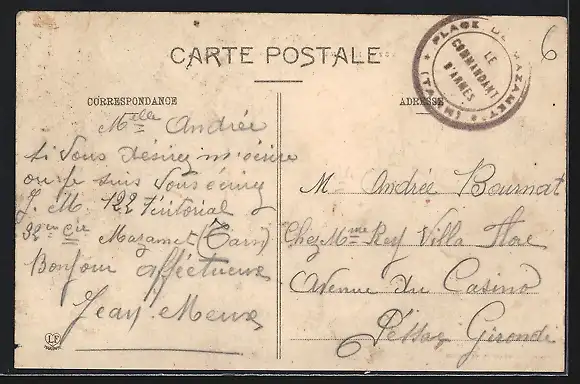 CARTE POSTALE
CORRESPONDANCE
Melle Andrée
si vous désirez m'écrire
ou je suis vous écrirez
J. M. 122 Téritorial
32eme Cie Mazamet (Tarn)
Bonjour afféctueux
Jean Meux
LF
ADRESSE
PLACE DE MAZAMET (TARN)
LE
COMMANDANT
D'ARMES
6
Mlle Andrée Bournat
Chez Mme Rey Villa Flore
Avenue du Casino
Pessac Gironde